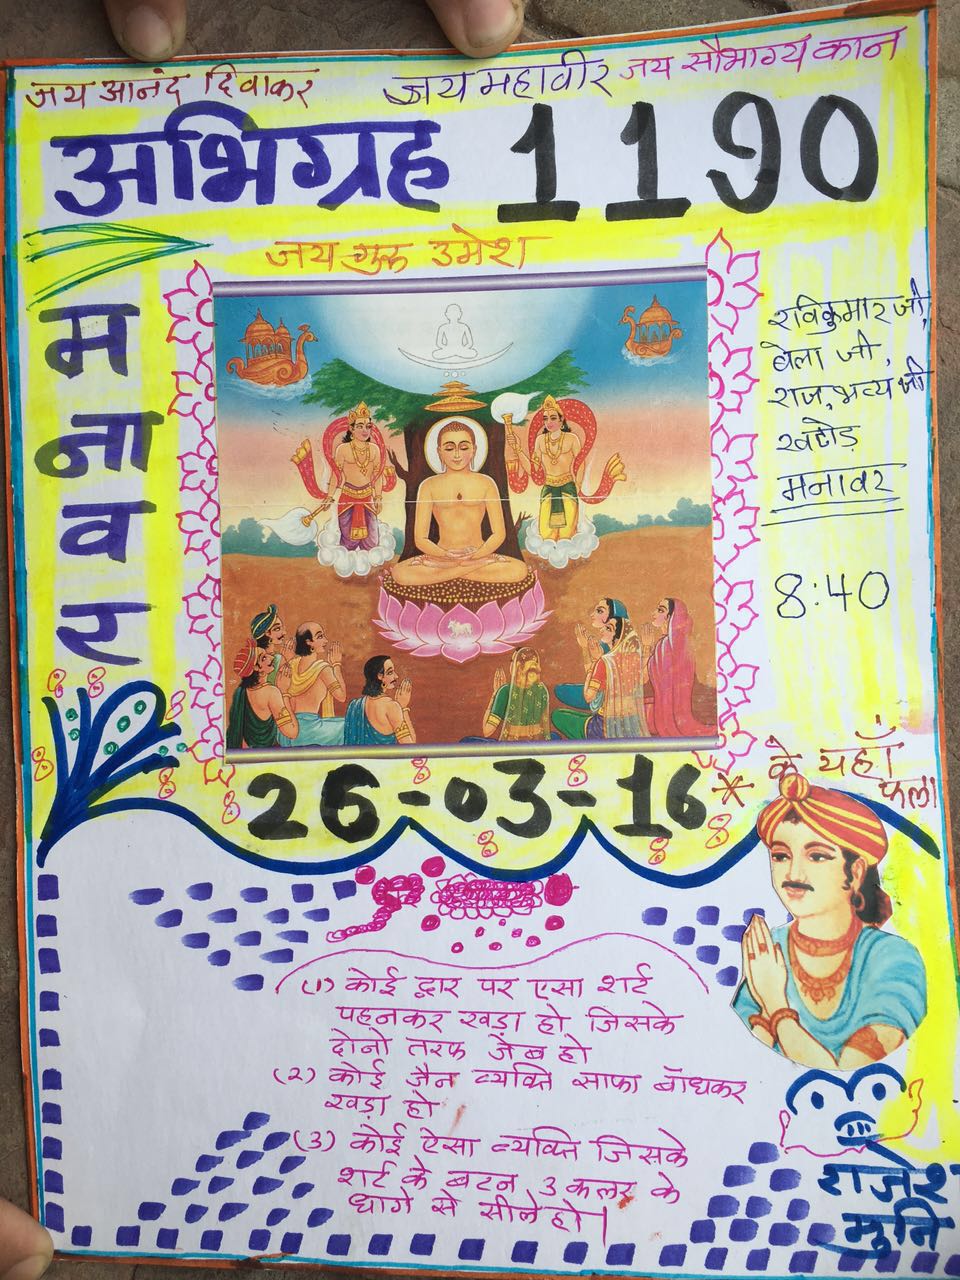 जय आनंद दिवाकर
जय महावीर
जय सौभाग्य कान
अभिग्रह 1190
जय गुरू उमेश
मनावर
रविकुमार जी,
बेला जी,
राज, भव्य जी
खटोड़
मनावर
8:40
26-03-16
* के यहाँ
फला
(1) कोई द्वार पर एसा शर्ट
पहनकर खड़ा हो जिसके
दोनो तरफ जेब हो
(2) कोई जैन व्यक्ति साफा बाँधकर
खड़ा हो
(3) कोई ऐसा व्यक्ति जिसके
शर्ट के बटन 3 कलर के
धागे से सीले हो।
राजेश
मुनि